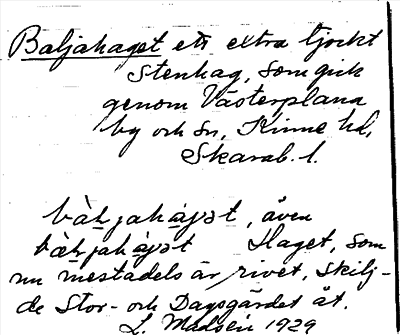 Baljahaget ett extra tjockt
stenhag, som gick
genom Västerplana
by och sn, Kinne hd,
Skarab. l.
även
Haget, som
nu mestadels är rivet, skilj-
de Stor- och Dagsgärdet åt.
L. Madsén 1929